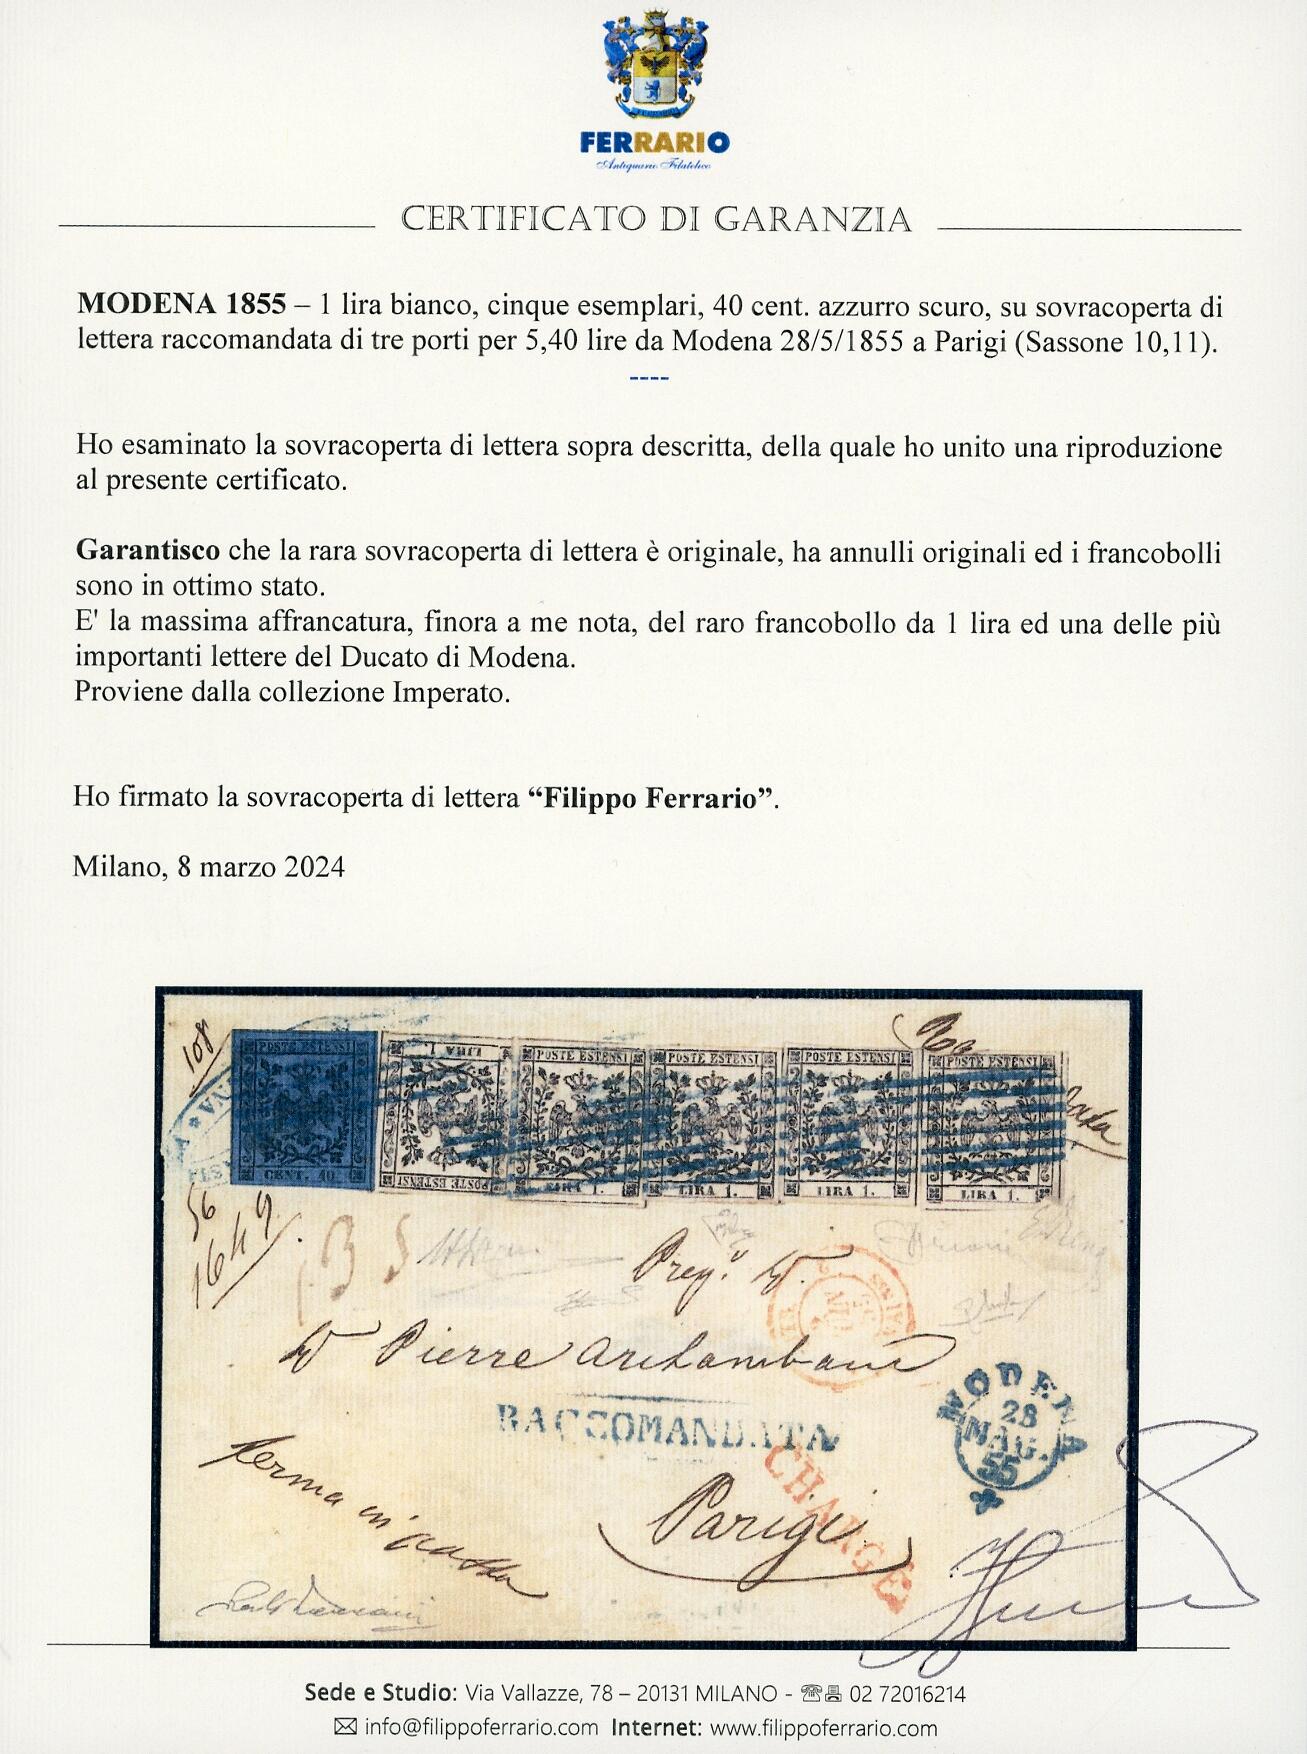 FERRARIO
Antiquario Filatelico
CERTIFICATO DI GARANZIA
MODENA 1855 – 1 lira bianco, cinque esemplari, 40 cent. azzurro scuro, su sovracoperta di
lettera raccomandata di tre porti per 5,40 lire da Modena 28/5/1855 a Parigi (Sassone 10,11).
----
Ho esaminato la sovracoperta di lettera sopra descritta, della quale ho unito una riproduzione
al presente certificato.
Garantisco che la rara sovracoperta di lettera è originale, ha annulli originali ed i francobolli
sono in ottimo stato.
E' la massima affrancatura, finora a me nota, del raro francobollo da 1 lira ed una delle più
importanti lettere del Ducato di Modena.
Proviene dalla collezione Imperato.
Ho firmato la sovracoperta di lettera “Filippo Ferrario”.
Milano, 8 marzo 2024
108
POSTE ESTENSI
CENT. 40
LIRA 1
POSTE ESTENSI
POSTE ESTENSI
LIRA 1.
POSTE ESTENSI
LIRA 1.
POSTE ESTENSI
LIRA 1.
POSTE ESTENSI
LIRA 1.
56
1649
Pierre
RACCOMANDATA
MODENA
28
MAG.
55
CHARGÉ
Parigi
ferma in
Sede e Studio: Via Vallazze, 78 – 20131 MILANO - ☎🖷 02 72016214
✉ info@filippoferrario.com Internet: www.filippoferrario.com